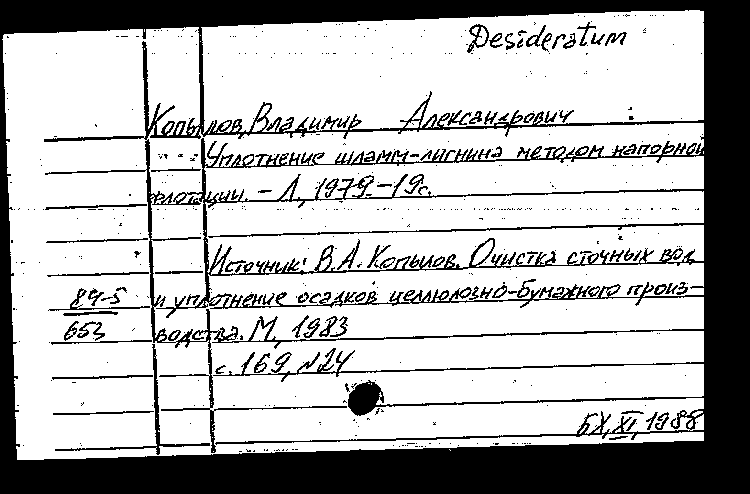 Desideratum
Копылов, Владимир Александрович
Уплотнение шламм-лигнина методом напорной
флотации. - Л., 1979. - 19с.
Источник: В.А. Копылов. Очистка сточных вод
84-5 и уплотнение осадков целлюлозно-бумажного произ-
653 водства. М., 1983
с. 169, №24
БХ, XI, 1988